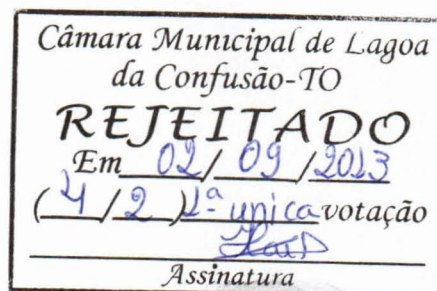 Câmara Municipal de Lagoa
da Confusão-TO
REJEITADO
Em 02/ 09 /2013
( 4 / 2 ) 1ª unica votação
Assinatura